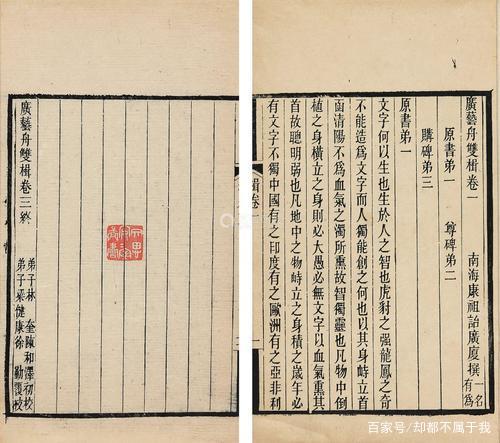 廣藝舟雙楫卷一
南海康祖詒廣廈撰一名有為
原書弟一 尊碑弟二
購碑弟三
原書弟一
文字何以生也生於人之智也虎豹之强龍鳳之奇
不能造爲文字而人獨能創之何也以其身峙立首
函清陽不爲血氣之濁所熏故智獨靈也凡物中倒
植之身橫立之身則必大愚必無文字以血氣熏其
首故聰明弱也凡地中之物峙立之身積之歲年必
有文字不獨中國有之印度有之歐洲有之亞非利
楫卷一
廣藝舟雙楫卷三終
弟子林 奎陳和澤初校
弟子梁健康徐 勤覆校
百家号/却都不属于我